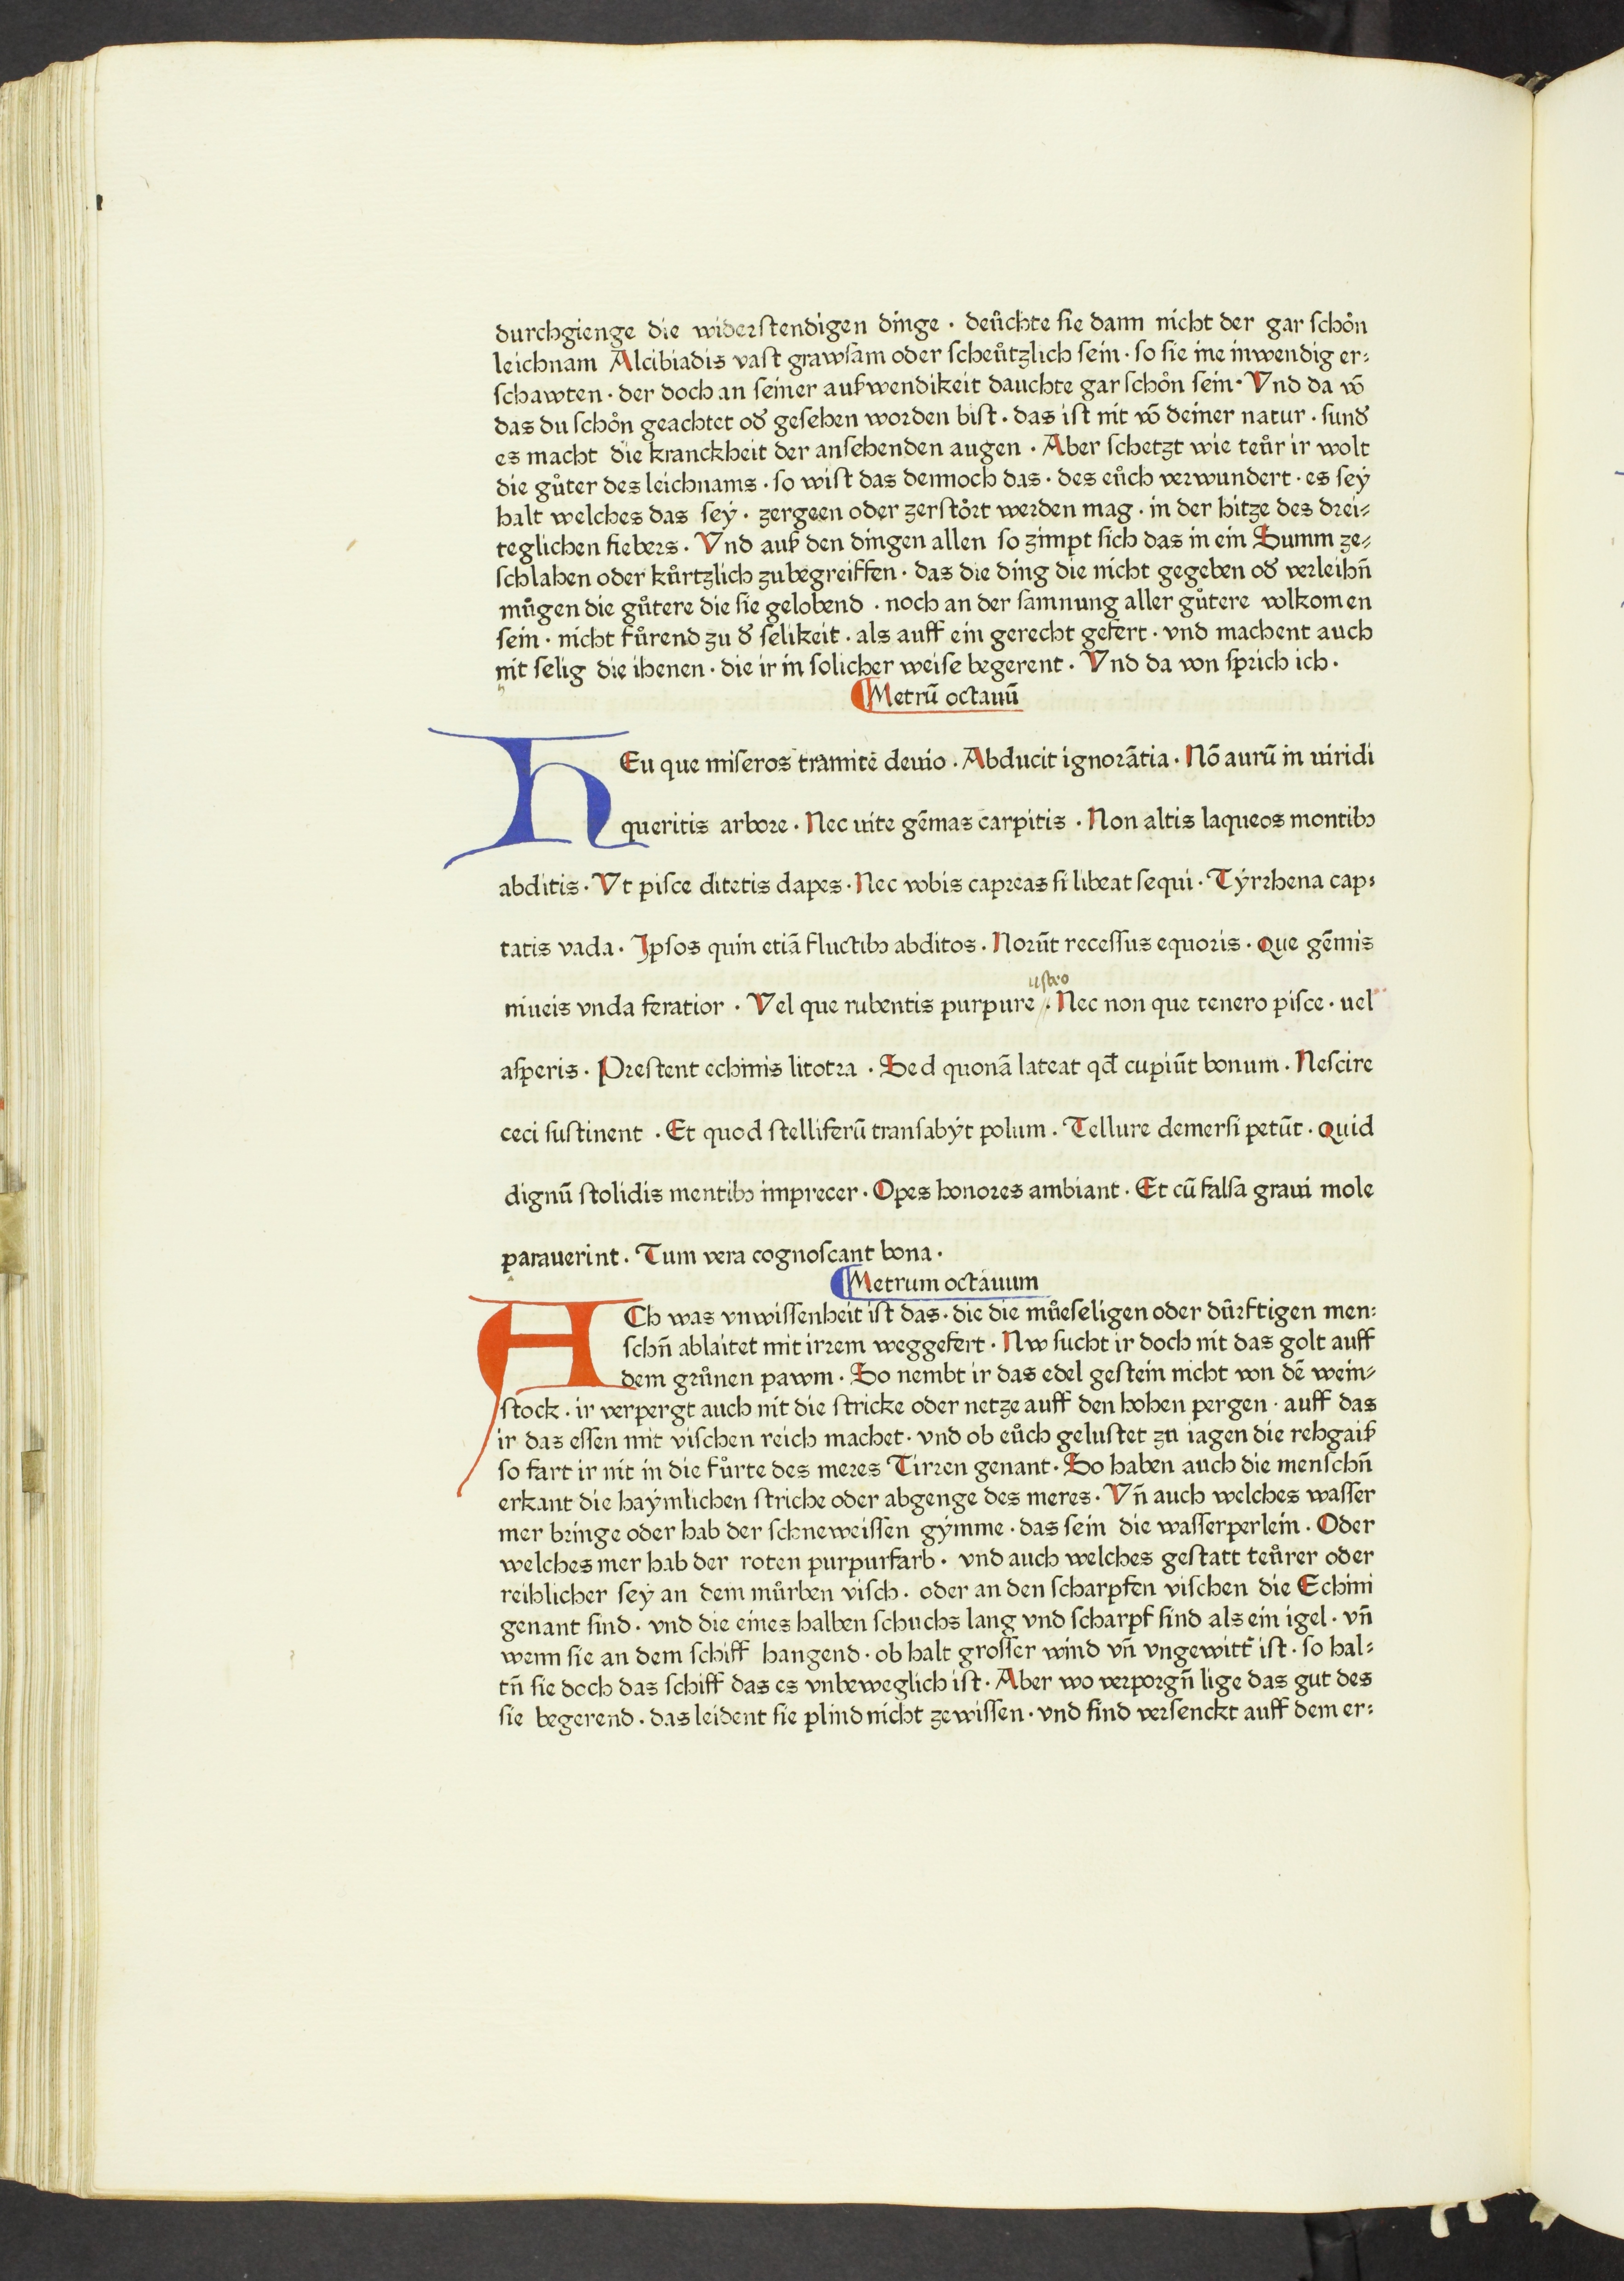 durchgienge die widerstendigen dinge · deůchte sie dann nicht der gar schoͤn
leichnam Alcibiadis vast grawsam oder scheůtzlich sein · so sie ine inwendig er:
schawten · der doch an seiner auß wendikeit dauchte gar schoͤn sein · Vnd da vō
das du schoͤn geachtet od' gesehen worden bist · das ist nit vō deiner natur · sund'
es macht die kranckheit der ansehenden augen · Aber schetzt wie teůr ir wolt
die gůter des leichnams · so wist das dennoch das · des eůch verwundert · es seÿ
halt welches das seÿ · zergeen oder zerstoͤrt werden mag · in der hitze des drei⸗
teglichen fiebers · Vnd auß den dingen allen so zimpt sich das in ein Summ ze⸗
schlahen oder kůrtzlich zubegreiffen · das die ding die nicht gegeben od' verleihn̄
můgen die gůtere die sie gelobend · noch an der samnung aller gůtere volkomen
sein · nicht fůrend zu d' selikeit · als auff ein gerecht gefert · vnd machent auch
nit selig die ihenen · die ir in solicher weise begerent · Vnd da von sprich ich ·
¶Metrū octauū
HEu que miseros tramite deuio · Abducit ignorātia · Nō aurū in uiridi
queritis arbore · Nec uite gēmas carpitis · Non altis laqueos montibꝰ
abditis · Vt pisce ditetis dapes · Nec vobis capreas si libeat sequi · Tÿrrhena cap⸗
tatis vada · Ipsos quin etiā fluctibꝰ abditos · Norūt recessus equoris · Que gēmis
niueis vnda feratior · Vel que rubentis purpure · Nec non que tenero pisce · uel
asperis · Prestent echinis litotra · Sed quonā lateat qđ cupiūt bonum · Nescire
ceci sustinent · Et quod stelliferū transabÿt polum · Tellure demersi petūt · Quid
dignū stolidis mentibꝰ imprecer · Opes honores ambiant · Et cū falsa graui mole
parauerint · Tum vera cognoscant bona ·
¶Metrum octauum
ACh was vnwissenheit ist das · die die můeseligen oder důrftigen men:
schn̄ ablaitet mit irrem weggefert · Nw sucht ir doch nit das golt auff
dem grůnen pawm · So nembt ir das edel gestein nicht von dē wein⸗
stock · ir verpergt auch nit die stricke oder netze auff den hohen pergen · auff das
ir das essen mit vischen reich machet · vnd ob eůch gelustet zu iagen die rehgaiß
so fart ir nit in die fůrte des meres Tirren genant · So haben auch die menschn̄
erkant die haÿmlichen striche oder abgenge des meres · Vn̄ auch welches wasser
mer bringe oder hab der schneweissen gÿmme · das sein die wasserperlein · Oder
welches mer hab der roten purpurfarb · vnd auch welches gestatt teůrer oder
reihlicher seÿ an dem můrben visch · oder an den scharpfen vischen die Echini
genant sind · vnd die eines halben schuchs lang vnd scharpf sind als ein igel · vn̄
wenn sie an dem schiff hangend · ob halt grosser wind vn̄ vngewitt' ist · so hal:
tn̄ sie doch das schiff das es vnbeweglich ist · Aber wo verporgn̄ lige das gut des
sie begerend · das leident sie plind nicht zewissen · vnd sind versenckt auff dem er: